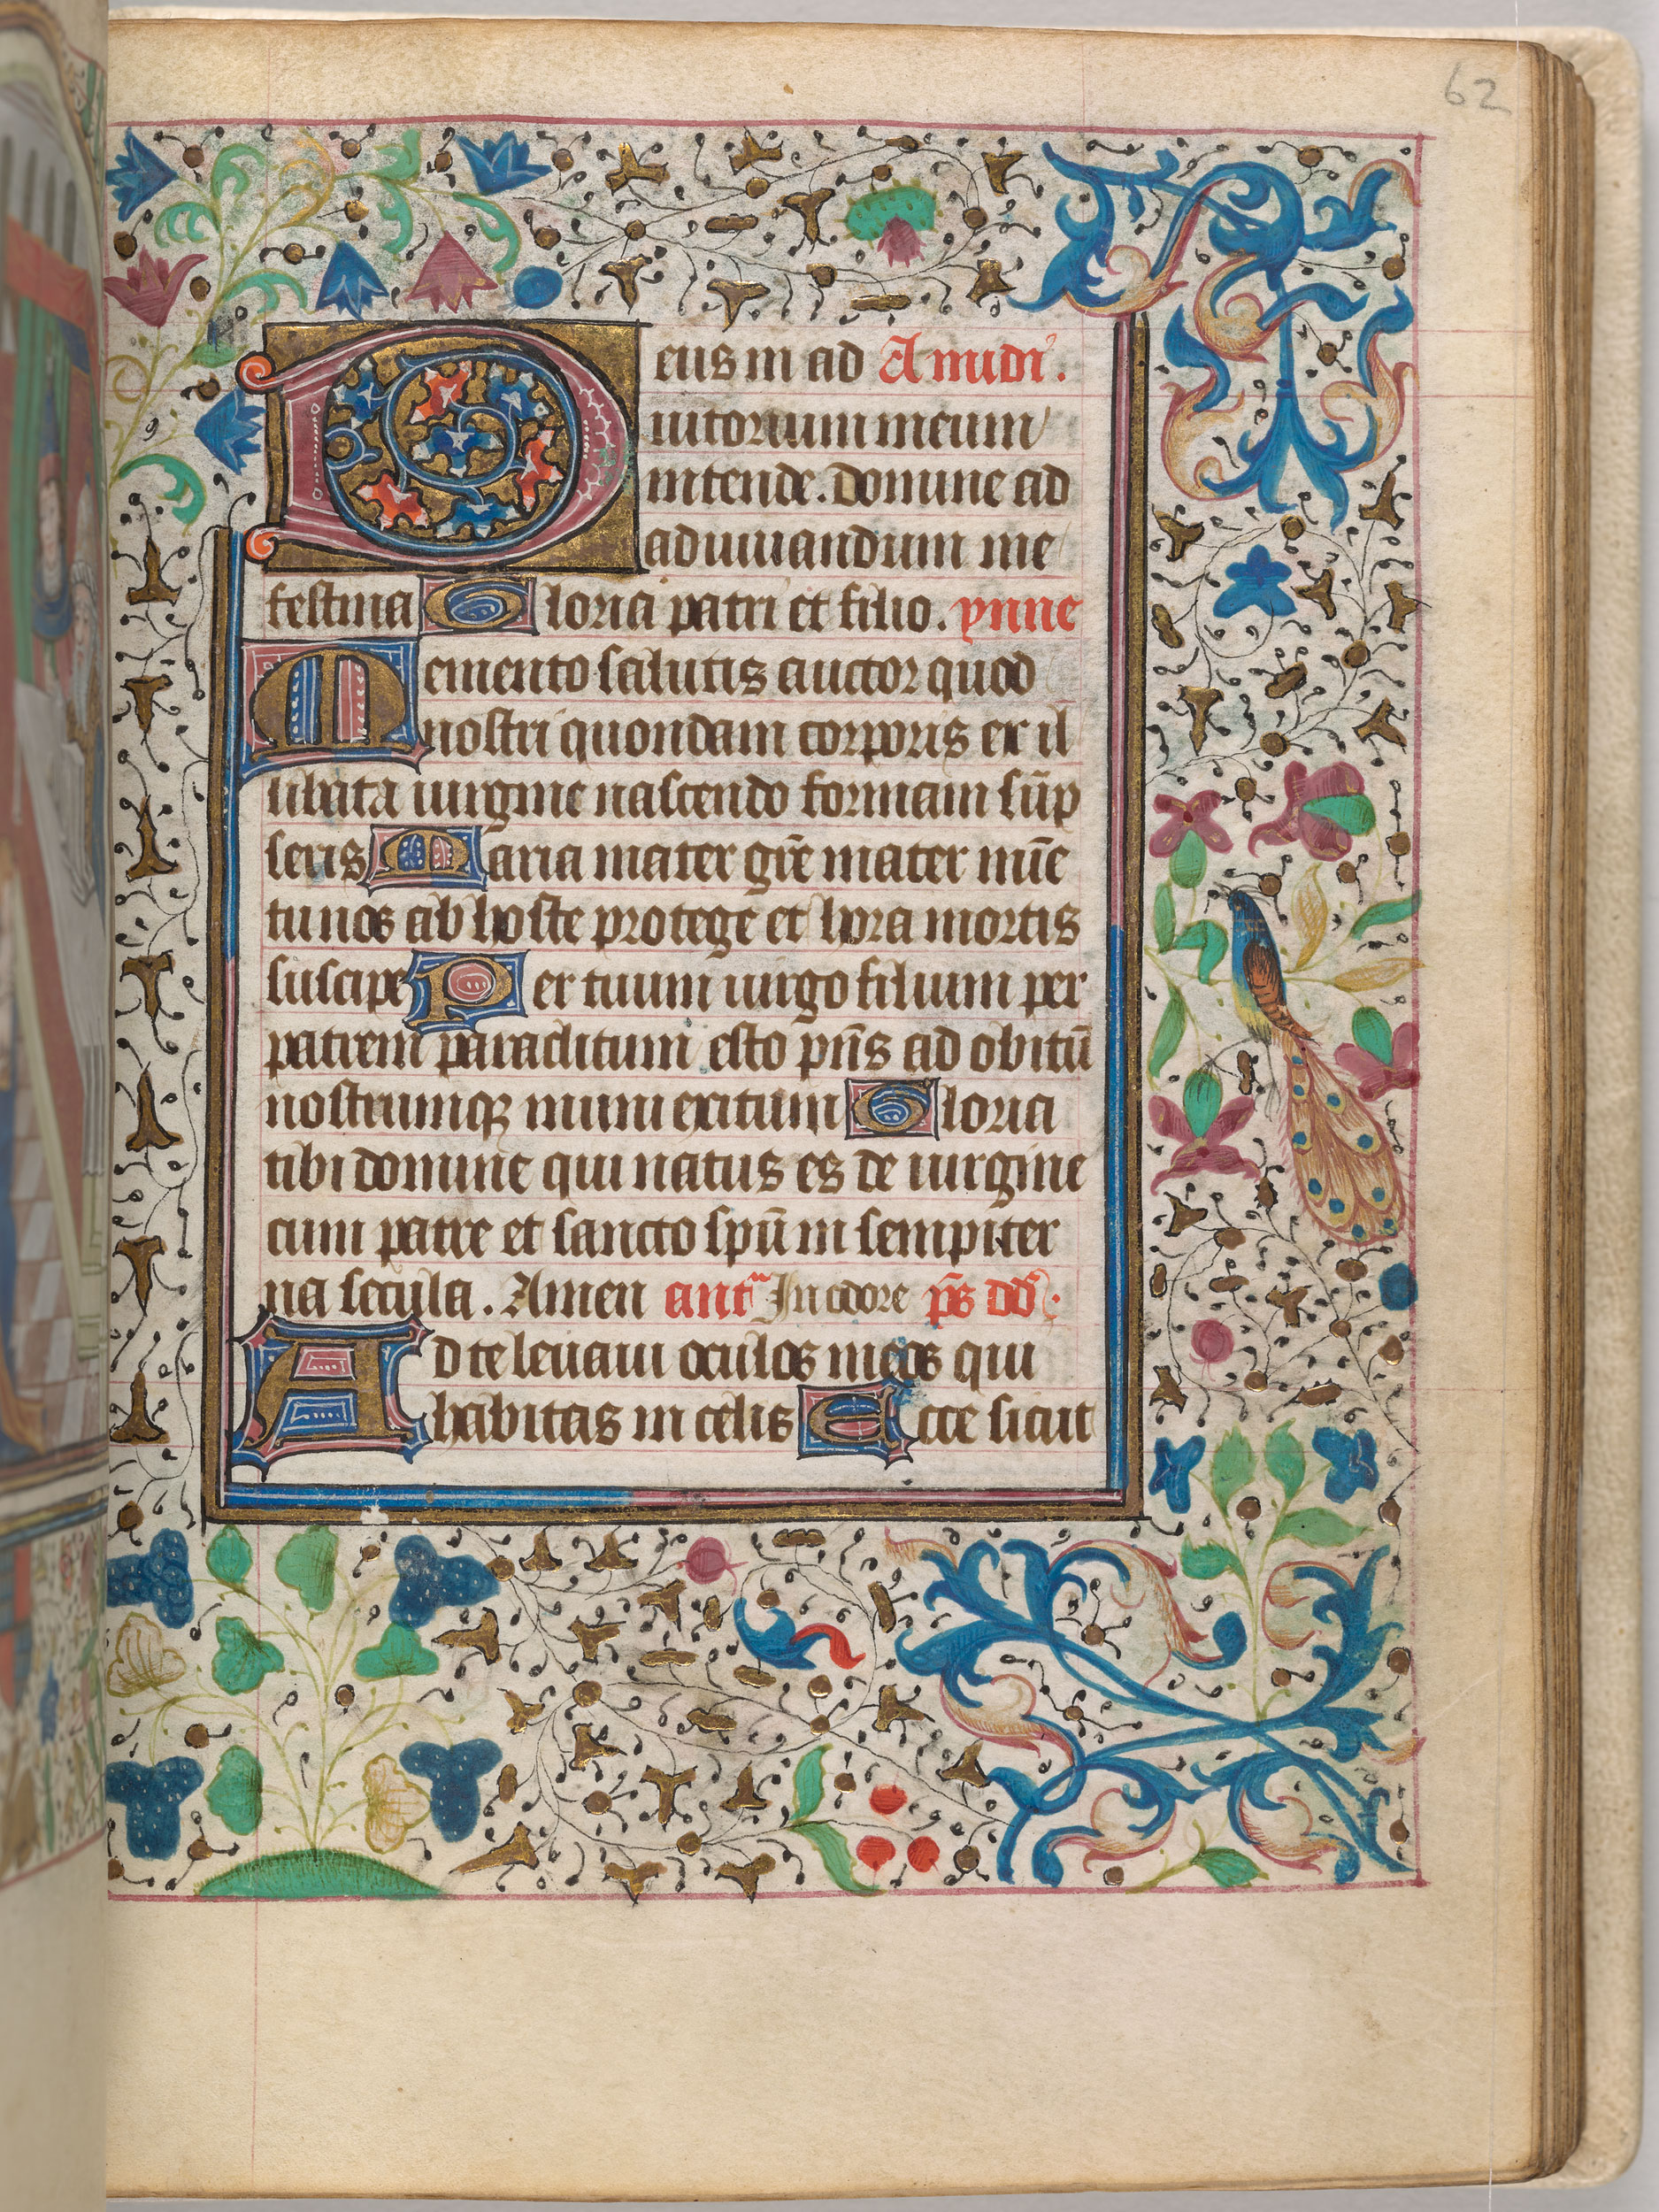 62
Deus in ad A midi.
iutorium meum
intende. Domine ad
adiuuandum me
festina Gloria patri et filio. ynne
Memento salutis auctor quod
nostri quondam corporis ex il
libata uirgine nascendo formam sūp
seris Maria mater grē mater mīe
tu nos ab hoste protege et hora mortis
suscipe Per tuum uirgo filium per
patrem paraclitum esto pn̄s ad obitū
nostrumqꝫ muni exitum Gloria
tibi domine qui natus es de uirgine
cum patre et sancto spū in sempiter
na secula. Amen ant̄ In odore p̄s dd̄.
Ad te leuaui oculos meos qui
habitas in celis Ecce sicut